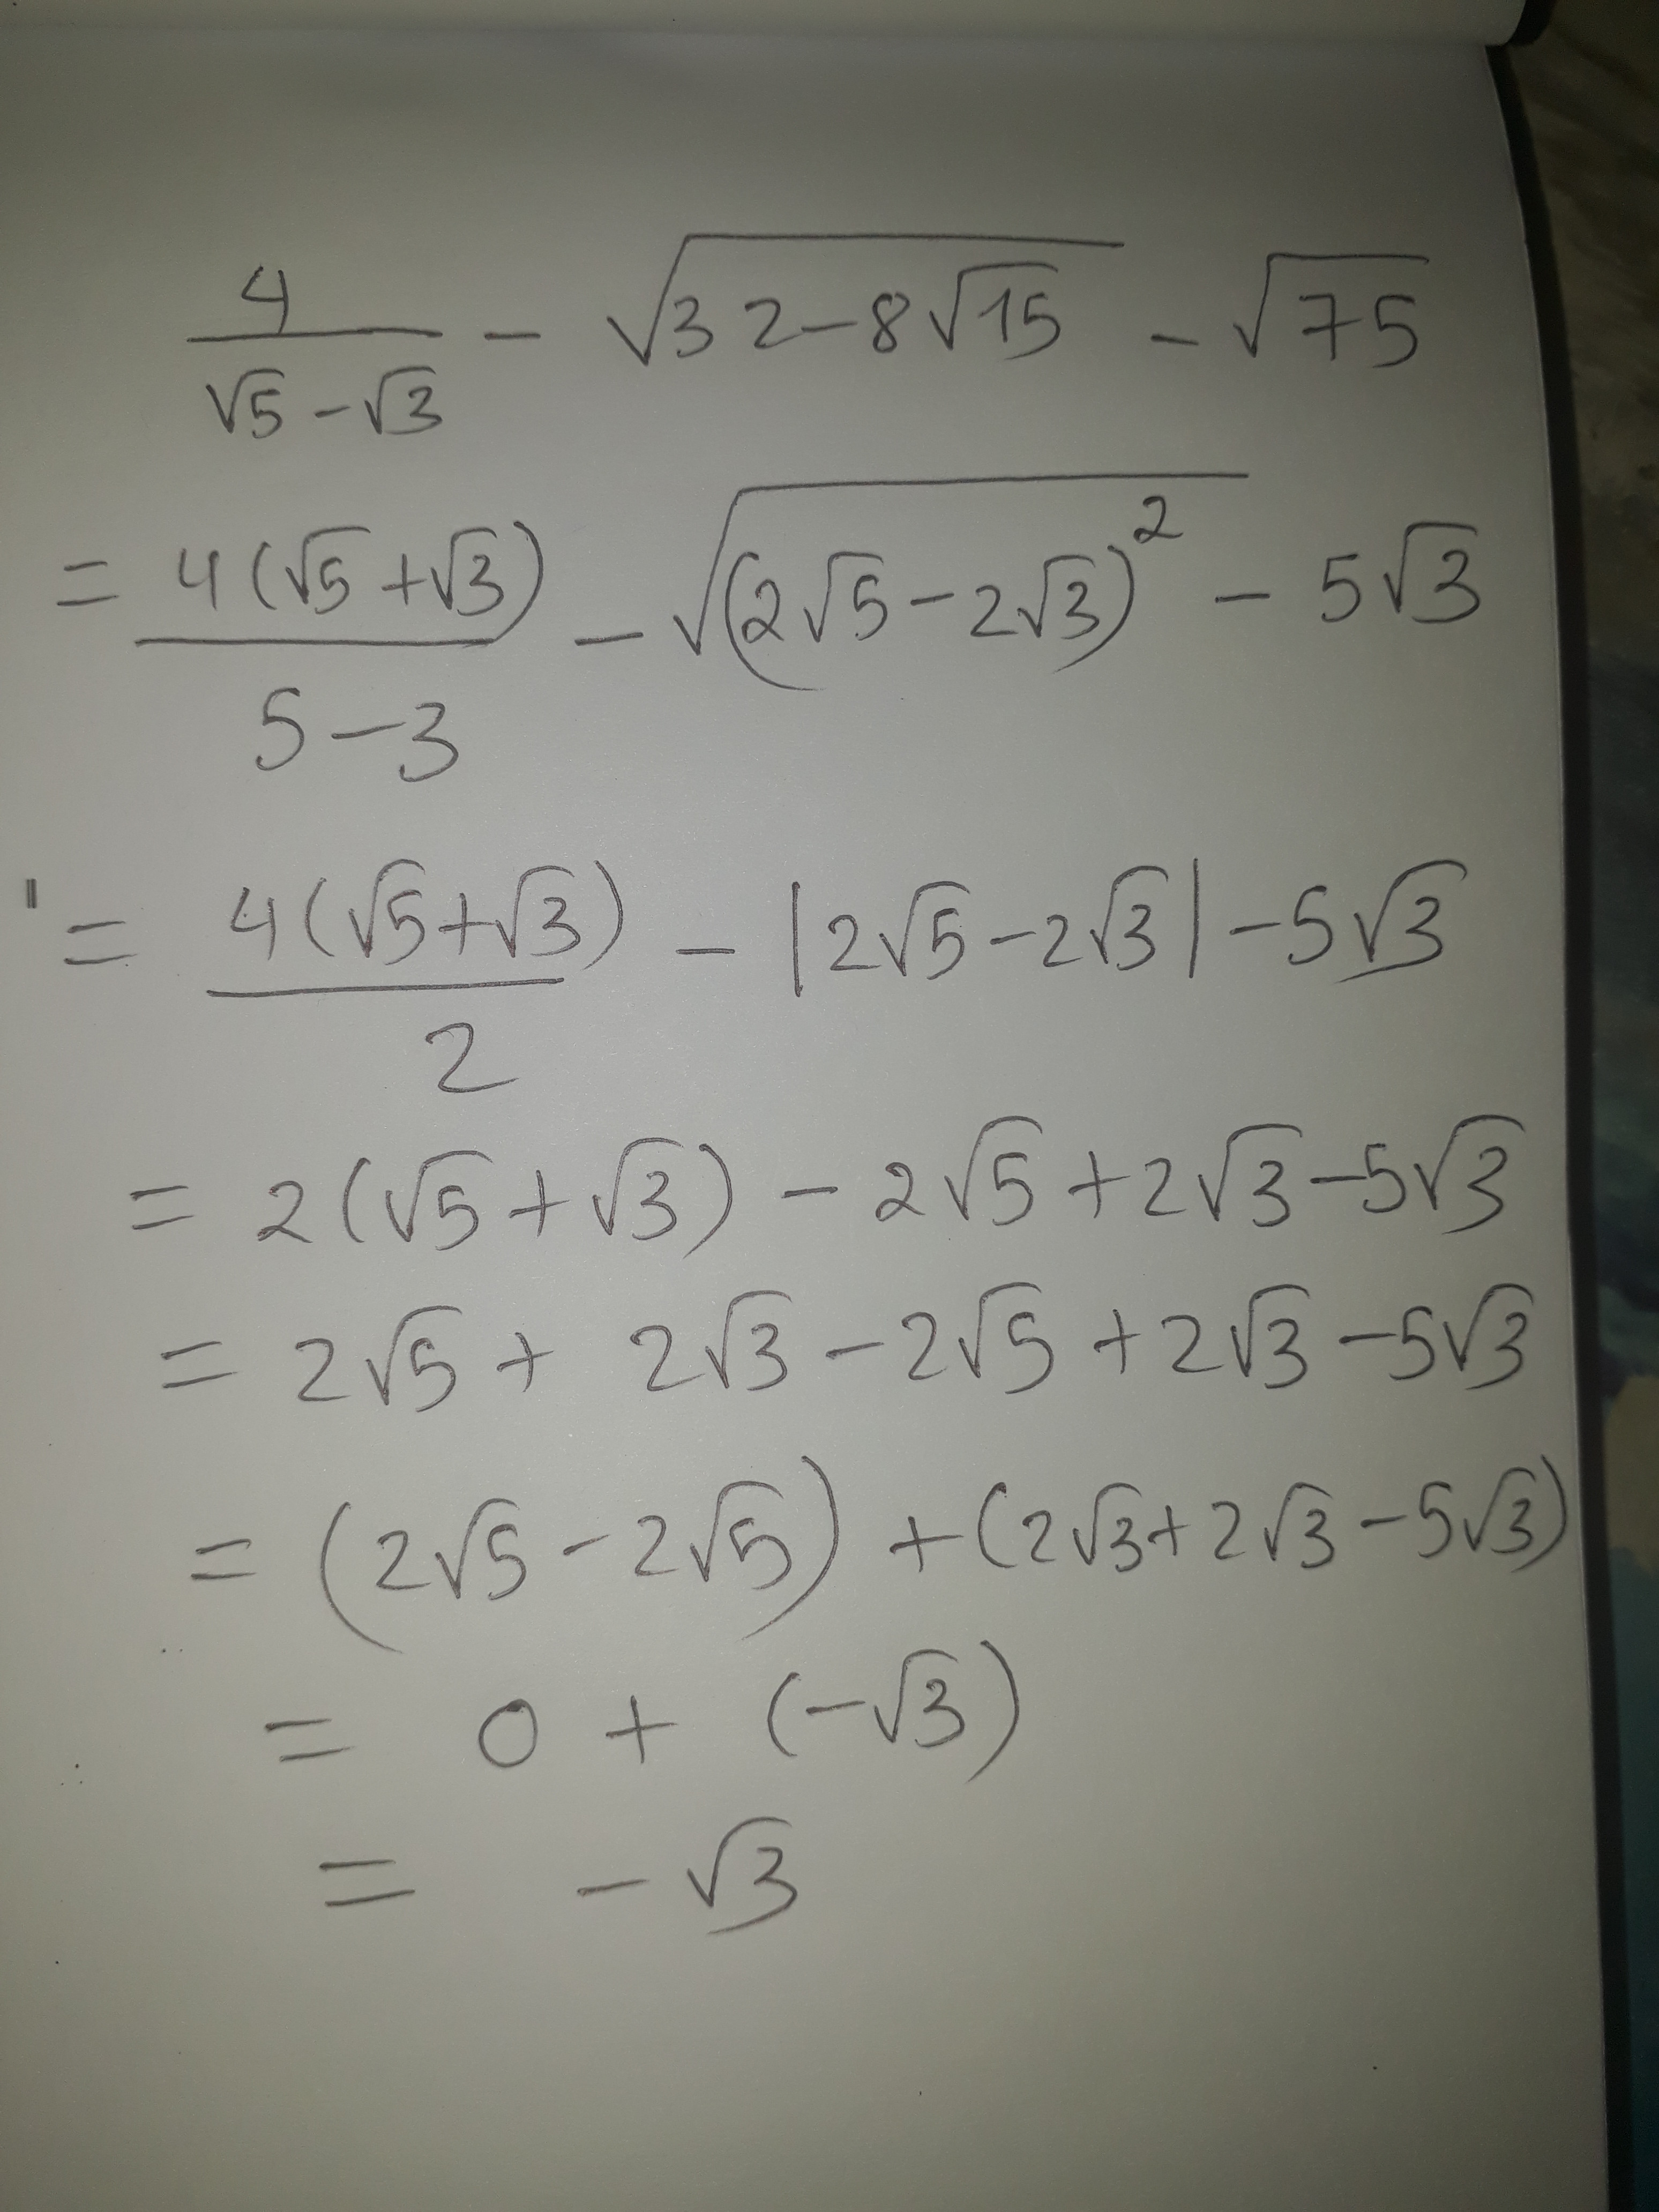 4/(√5-√3) - √(32-8√15) - √75
= 4(√5+√3)/(5-3) - √((2√5-2√3)²) - 5√3
= 4(√5+√3)/2 - |2√5-2√3| - 5√3
= 2(√5+√3) - 2√5 + 2√3 - 5√3
= 2√5 + 2√3 - 2√5 + 2√3 - 5√3
= (2√5 - 2√5) + (2√3 + 2√3 - 5√3)
= 0 + (-√3)
= -√3